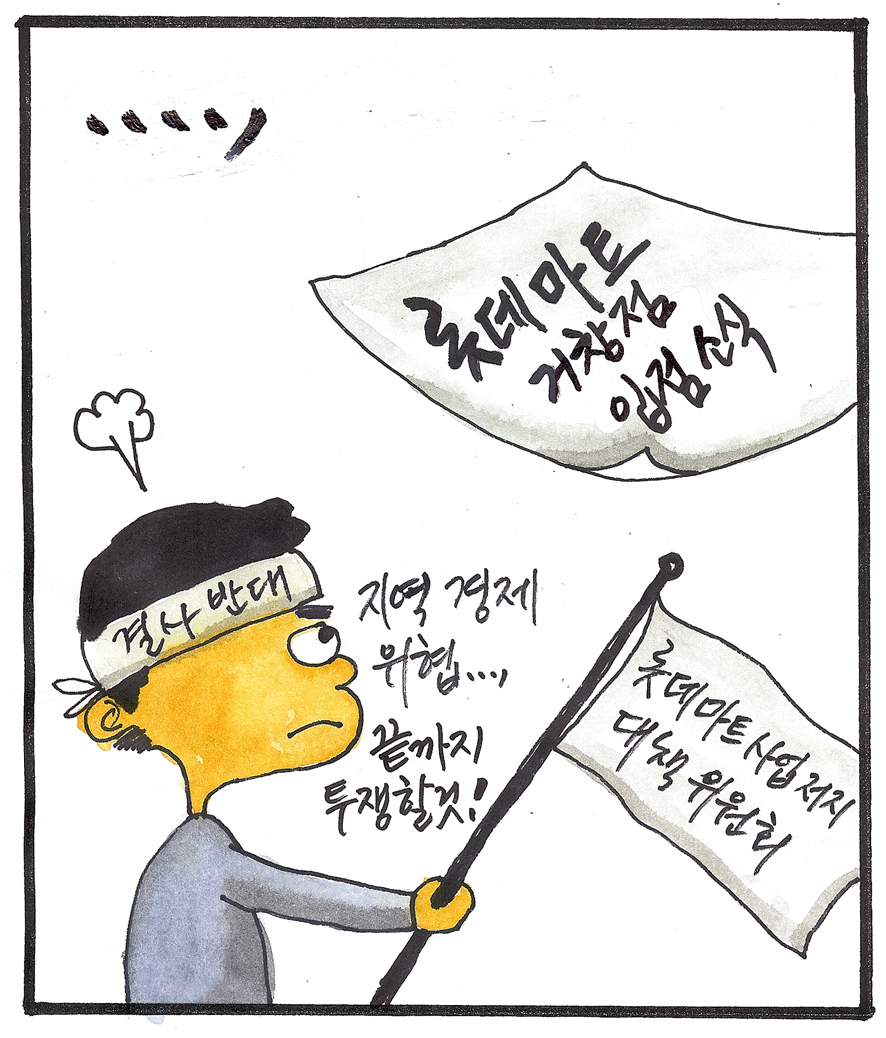 롯데마트
거창점
입점 소식
결사반대
지역 경제
위협...,
끝까지
투쟁할것!
롯데마트사업저지
대책 위원회